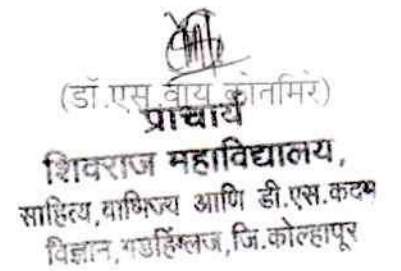 (डॉ.एस वाय कोतमिरे)
प्राचार्य
शिवराज महाविद्यालय,
साहित्य,वाणिज्य आणि डी.एस.कदम
विज्ञान,गडहिंग्लज,जि.कोल्हापूर